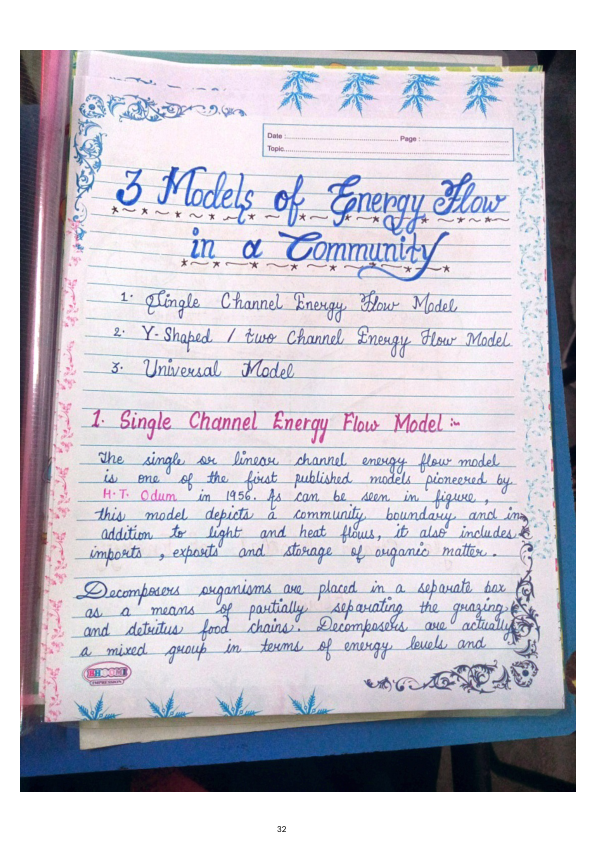 Date : Page :
Topic
3 Models of Energy Flow
in a Community
1. Single Channel Energy Flow Model
2. Y-Shaped / two Channel Energy Flow Model
3. Universal Model
1. Single Channel Energy Flow Model :-
The single or linear channel energy flow model
is one of the first published models pioneered by
H.T. Odum in 1956. As can be seen in figure,
this model depicts a community boundary and in
addition to light and heat flows, it also includes
imports, exports and storage of organic matter.
Decomposers organisms are placed in a separate box
as a means of partially separating the grazing
and detritus food chains. Decomposers are actually
a mixed group in terms of energy levels and
32